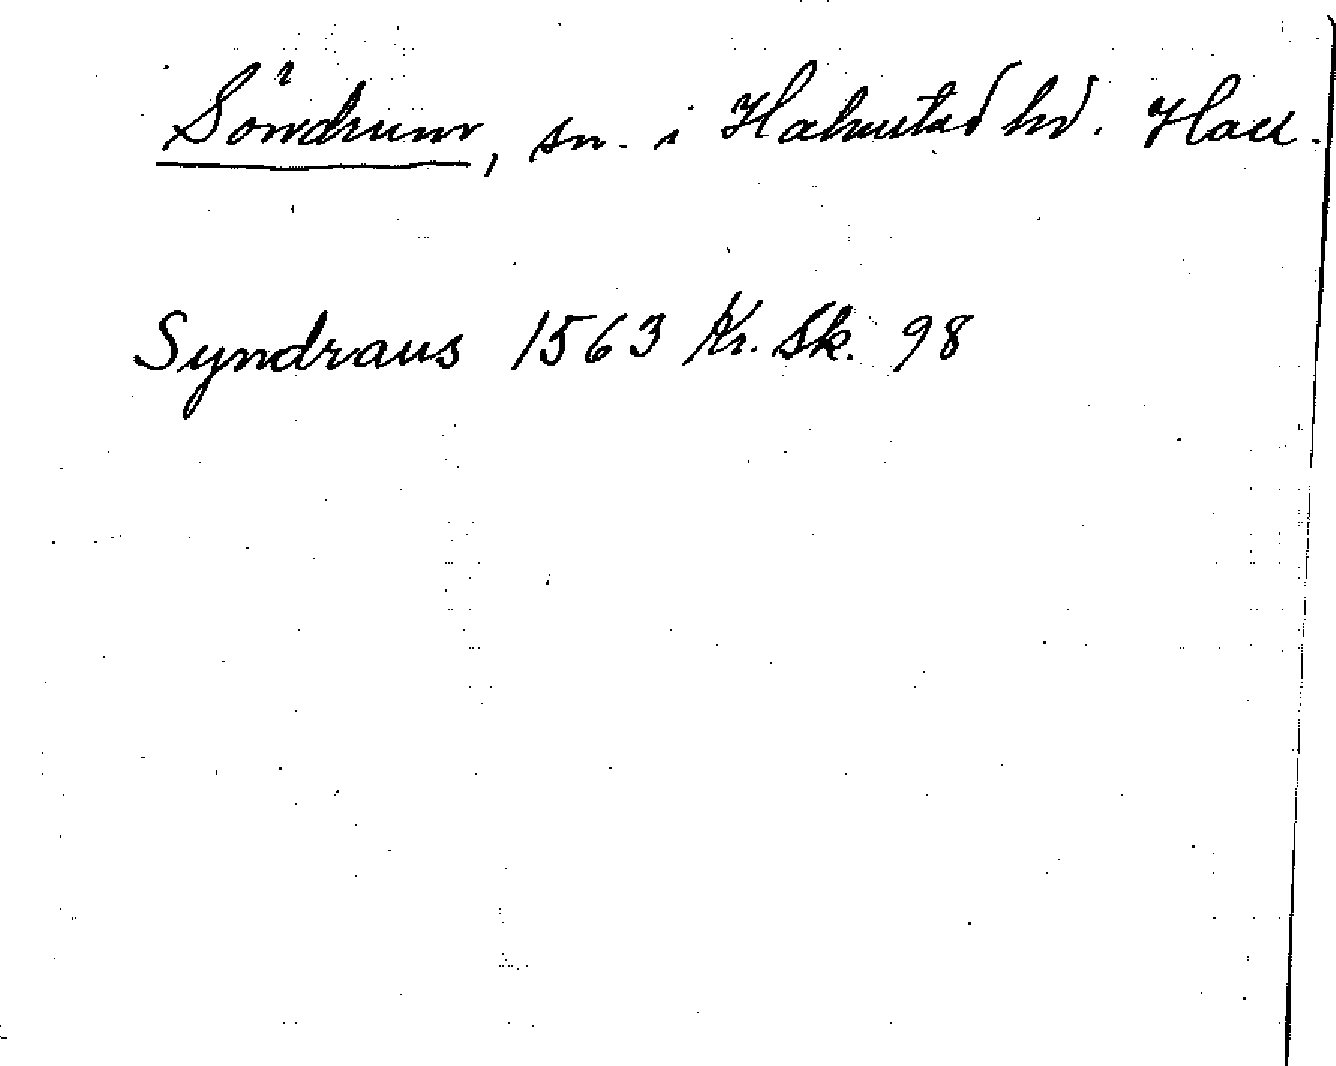 Söndrum, sn. i Halmstad hd. Hall.
Syndraus 1563 Kr. Sk. 98